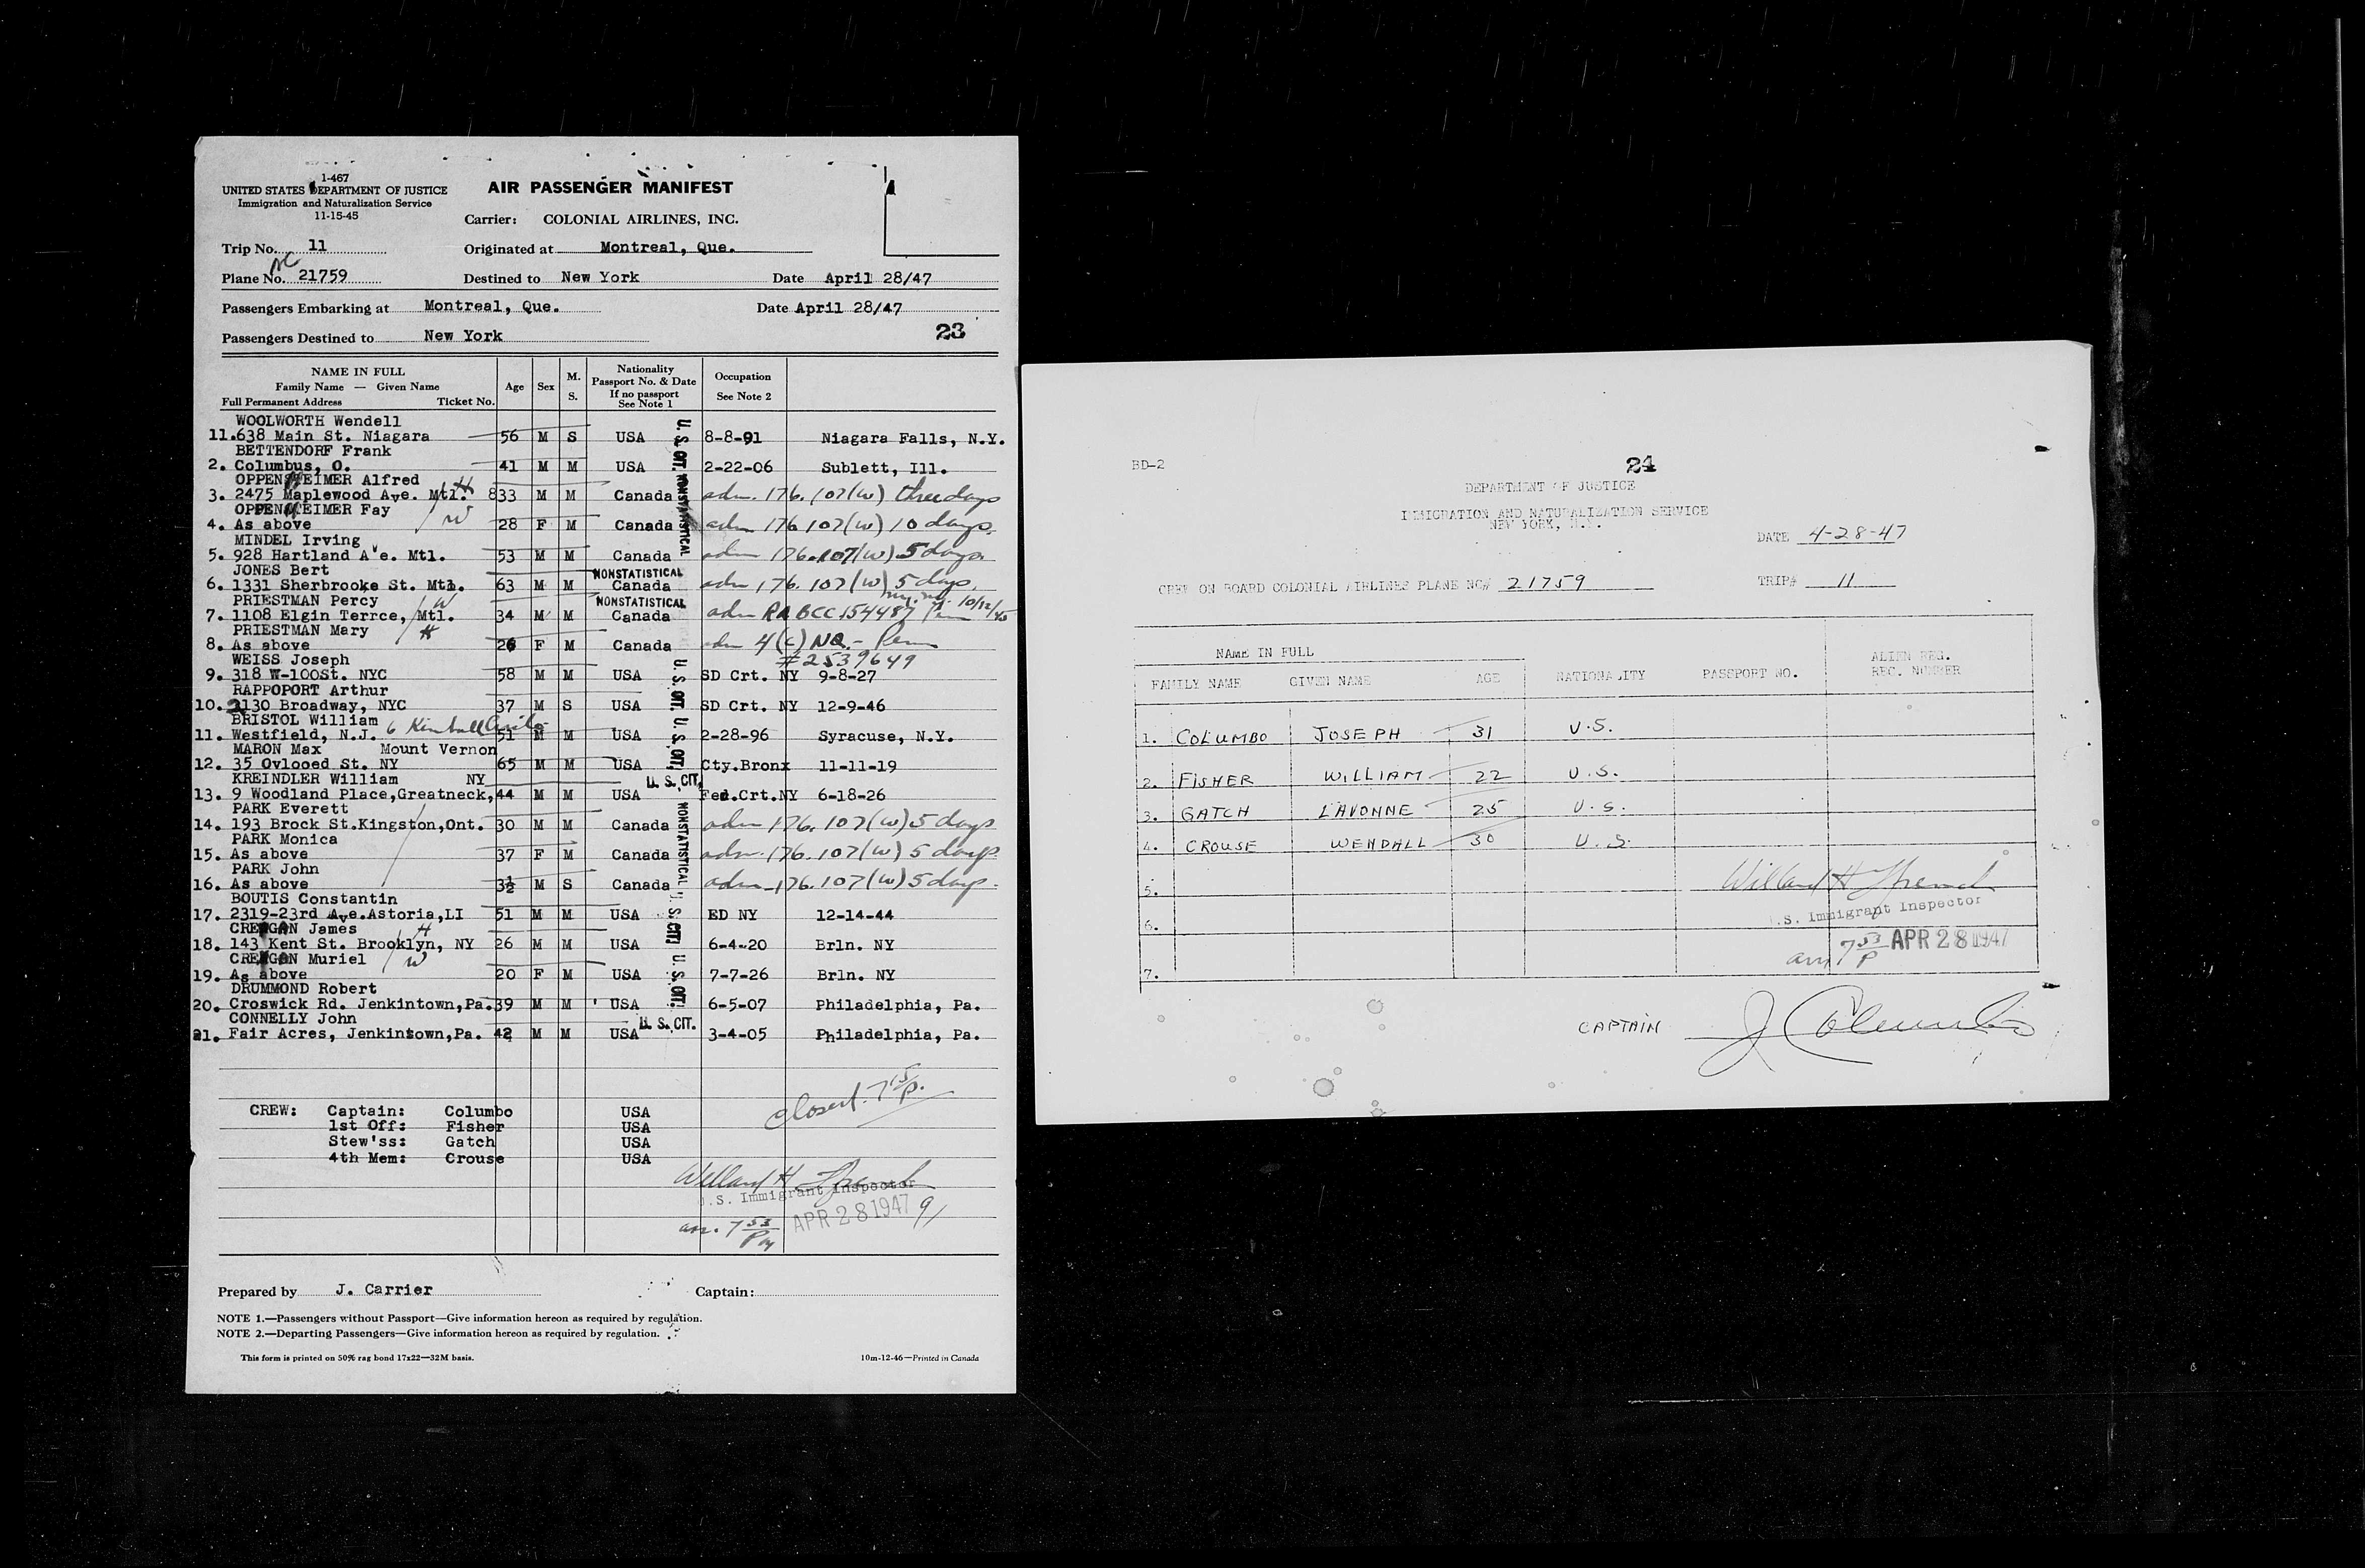 1-467
UNITED STATES DEPARTMENT OF JUSTICE
Immigration and Naturalization Service
11-15-45
AIR PASSENGER MANIFEST
Carrier: COLONIAL AIRLINES, INC.
Trip No. 11 Originated at Montreal, Que.
NC
Plane No. 21759 Destined to New York Date April 28/47
Passengers Embarking at Montreal, Que. Date April 28/47
Passengers Destined to New York 23
NAME IN FULL
Family Name — Given Name
Full Permanent Address Ticket No.
Age Sex M. S.
Nationality
Passport No. & Date
If no passport
See Note 1
Occupation
See Note 2
WOOLWORTH Wendell
11.638 Main St. Niagara 56 M S USA 8-8-91 Niagara Falls, N.Y.
BETTENDORF Frank
2. Columbus, O. 41 M M USA 2-22-06 Sublett, Ill.
OPPENHEIMER Alfred
3. 2475 Maplewood Ave. Mtl. H 833 M M Canada adm. 176.107(w) three days
OPPENHEIMER Fay
4. As above W 28 F M Canada adm 176.107(w) 10 days.
MINDEL Irving
5. 928 Hartland Ave. Mtl. 53 M M Canada adm 176.107(w) 5 days.
JONES Bert
6. 1331 Sherbrooke St. Mtl. 63 M M Canada adm 176.107(w) 5 days.
PRIESTMAN Percy W
7. 1108 Elgin Terrce, Mtl. 34 M M Canada adm RA BCC 154487 10/12/45
PRIESTMAN Mary H
8. As above 26 F M Canada adm 4(c) NQ - Perm
#2539649
WEISS Joseph
9. 318 W-100St. NYC 58 M M USA SD Crt. NY 9-8-27
RAPPOPORT Arthur
10. 2130 Broadway, NYC 37 M S USA SD Crt. NY 12-9-46
BRISTOL William
11. Westfield, N.J. 6 Kimball Circle 51 M M USA 2-28-96 Syracuse, N.Y.
MARON Max Mount Vernon
12. 35 Ovlooed St. NY 65 M M USA Cty.Bronx 11-11-19
KREINDLER William NY
13. 9 Woodland Place,Greatneck, 44 M M USA Fed.Crt.NY 6-18-26
PARK Everett
14. 193 Brock St.Kingston,Ont. 30 M M Canada adm 176.107(w) 5 days
PARK Monica
15. As above 37 F M Canada adm. 176.107(w) 5 days.
PARK John
16. As above 3½ M S Canada adm 176.107(w) 5 days.
BOUTIS Constantin
17. 2319-23rd Ave.Astoria,LI 51 M M USA ED NY 12-14-44
James H
18. 143 Kent St. Brooklyn, NY 26 M M USA 6-4-20 Brln. NY
Muriel W
19. As above 20 F M USA 7-7-26 Brln. NY
DRUMMOND Robert
20. Croswick Rd. Jenkintown,Pa. 39 M M USA 6-5-07 Philadelphia, Pa.
CONNELLY John
21. Fair Acres, Jenkintown,Pa. 42 M M USA 3-4-05 Philadelphia, Pa.
U. S. CIT.
NONSTATISTICAL
NONSTATISTICAL
NONSTATISTICAL
U. S. CIT.
U. S. CIT.
U. S. CIT.
NONSTATISTICAL
U. S. CIT.
U. S. CIT.
U. S. CIT.
closed. 7 15/P.
CREW: Captain: Columbo USA
1st Off: Fisher USA
Stew'ss: Gatch USA
4th Mem: Crouse USA
Willard H
U.S. Immigrant Inspector
arr. 7 53 PM APR 28 1947
Prepared by J. Carrier Captain:
NOTE 1.—Passengers without Passport—Give information hereon as required by regulation.
NOTE 2.—Departing Passengers—Give information hereon as required by regulation.
This form is printed on 50% rag bond 17x22—32M basis. 10m-12-46—Printed in Canada
BD-2 24
DEPARTMENT OF JUSTICE
IMMIGRATION AND NATURALIZATION SERVICE
NEW YORK, N.Y.
DATE 4-28-47
CREW ON BOARD COLONIAL AIRLINES PLANE NO# 21759 TRIP# 11
NAME IN FULL
FAMILY NAME GIVEN NAME AGE NATIONALITY PASSPORT NO. ALIEN REG. REC. NUMBER
1. COLUMBO JOSEPH 31 U.S.
2. FISHER WILLIAM 22 U.S.
3. GATCH LAVONNE 25 U.S.
4. CROUSE WENDALL 30 U.S.
5.
6.
7.
Willard H
U.S. Immigrant Inspector
arr 7 53 P APR 28 1947
CAPTAIN J Columbo